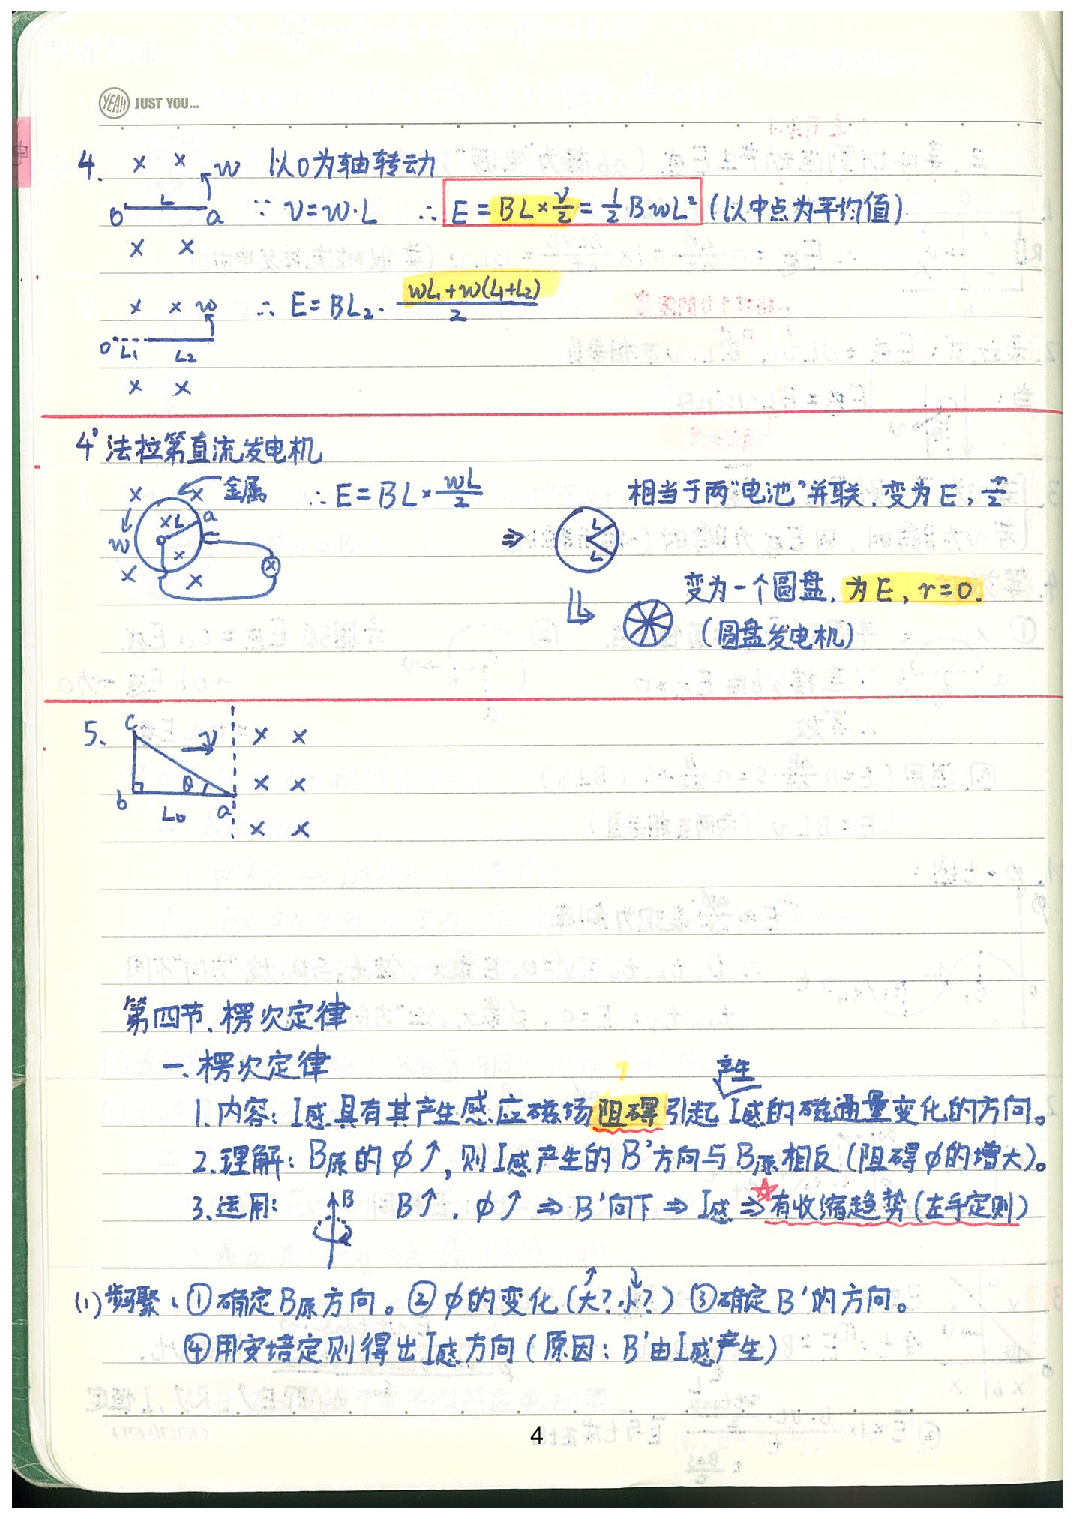 YEAH JUST YOU...
4. × × w 以O为轴转动
O L a ∵ v=w·L ∴ E=BL×v/2=1/2BwL² (以中点为平均值)
× ×
× × w ∴ E=BL₂·(wL₁+w(L₁+L₂))/2
O L₁ L₂
× ×
4' 法拉第直流发电机
× × 金属 ∴ E=BL×wL/2 相当于两"电池"并联,变为E, r/2
× L a
w O × ⇒ L L
× × 变为一个圆盘,为E, r=0.
(圆盘发电机)
5. c v × ×
b θ a × ×
L₀ × ×
第四节.楞次定律
一.楞次定律
产生
1.内容: I感具有其产生感应磁场阻碍引起I感的磁通量变化的方向。
2.理解: B原的φ↑,则I感产生的B'方向与B原相反(阻碍φ的增大)。
3.运用: B B↑. φ↑ ⇒ B'向下 ⇒ I感 ⇒ 有收缩趋势(左手定则)
(1)步骤: ①确定B原方向。②φ的变化(大?小?) ③确定B'的方向。
④用安培定则得出I感方向(原因: B'由I感产生)
4